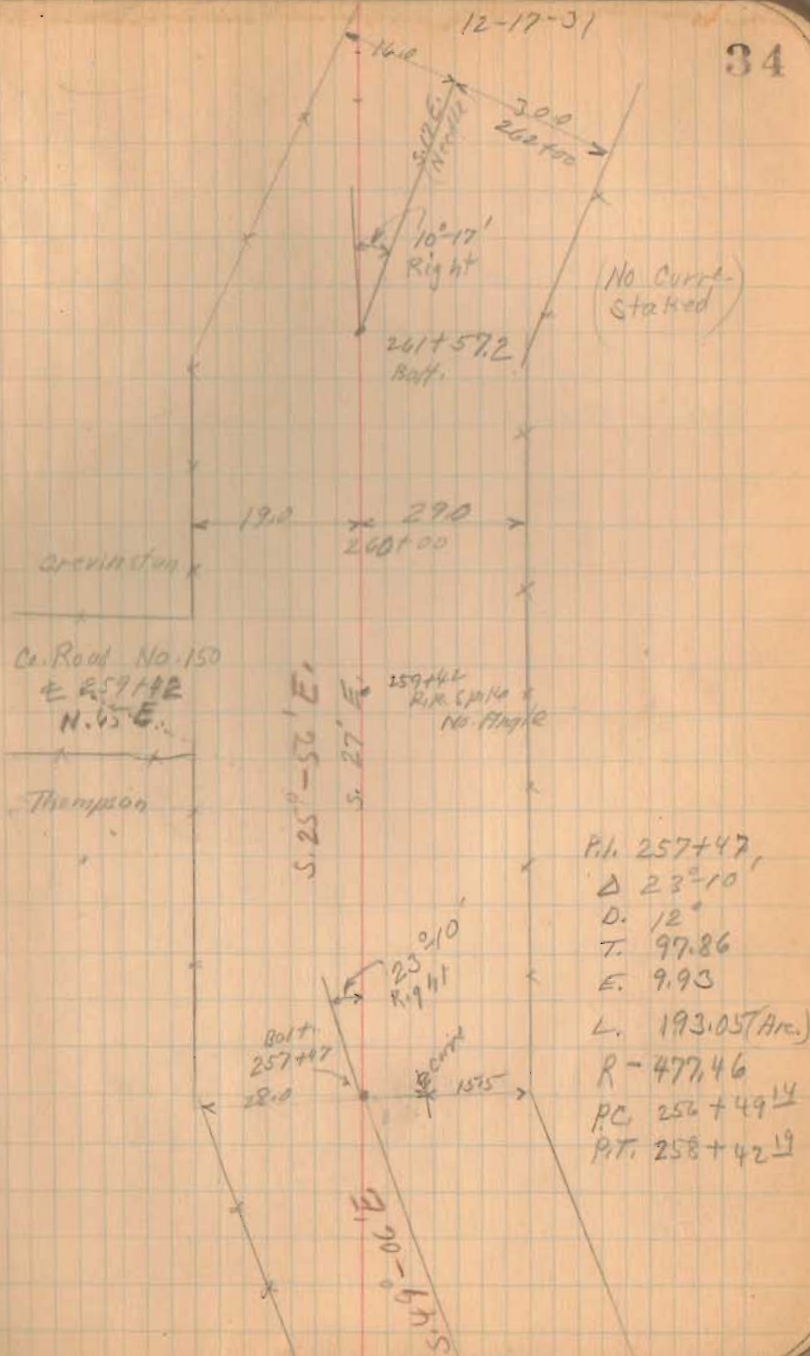 12-17-31
34
16.0
30.0
262+00
S.12E.
(Needle)
10°-17'
Right
(No Curve
Staked)
261+57.2
Bolt.
19.0
29.0
260+00
Crevinston
Co. Road No. 150
℄ 259+42
N.65 E.
Thompson
259+42
R.R. Spike
No Angle
S. 25°-56' E.
S. 27' E.
P.I. 257+47
Δ 23°-10'
D. 12°
T. 97.86
E. 9.93
L. 193.05 (Arc.)
R - 477.46
P.C. 256+49 14
P.T. 258+42 19
23°-10'
Right
Bolt.
257+47
28.0
℄ Curve
15.5
S. 49°-06' E.